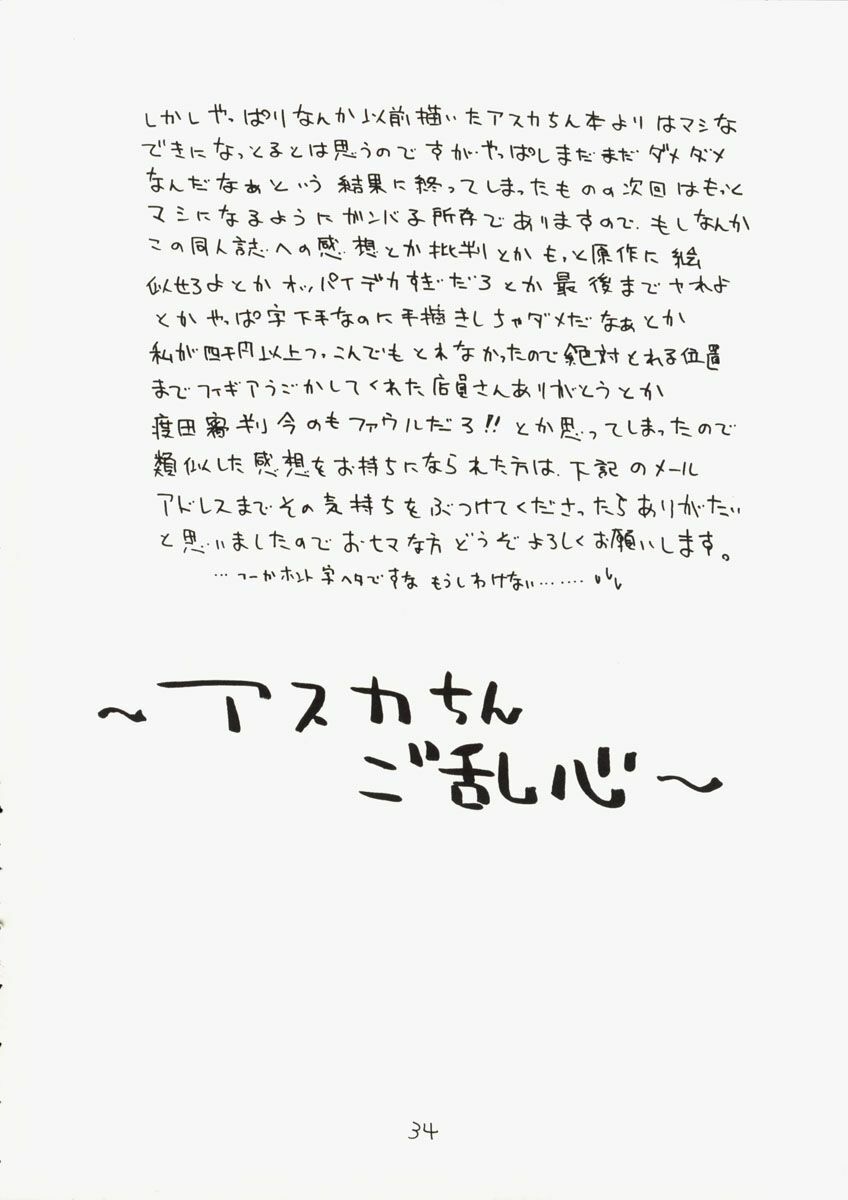 しかしやっぱりなんか以前描いたアスカちん本よりはマシな
できになっとるとは思うのですが、やっぱしまだまだダメダメ
なんだなぁという結果に終ってしまったものの次回はもっと
マシになるようにガンバる所存でありますので、もしなんか
この同人誌への感想とか批判とかもっと原作に絵
似せろよとかオッパイデカすぎだろとか最後までヤれよ
とかやっぱ字下手なのに手描きしちゃダメだなぁとか
私が四千円以上つっこんでもとれなかったので絶対とれる位置
までフィギアうごかしてくれた店員さんありがとうとか
渡田審判今のもファウルだろ!!とか思ってしまったので
類似した感想をお持ちになられた方は、下記のメール
アドレスまでその気持ちをぶつけてくださったらありがたい
と思いましたのでおヒマな方どうぞよろしくお願いします。
…つーかホント字ヘタですな もうしわけない……
～アスカちん
ご乱心～
34